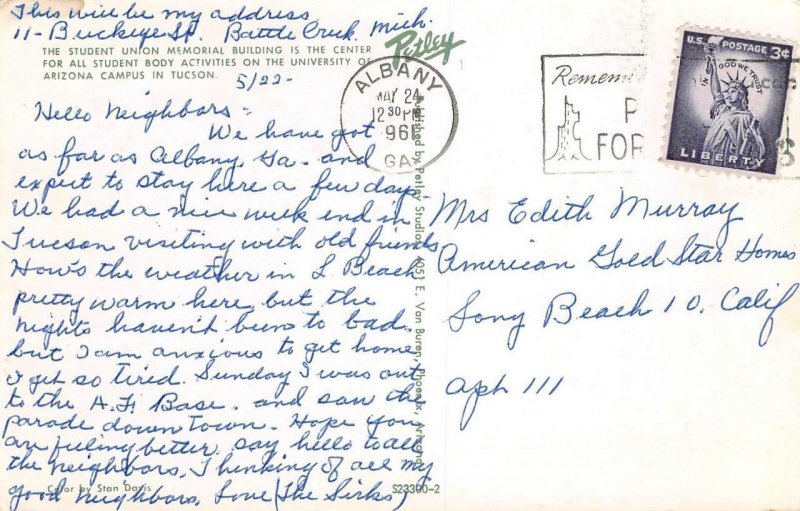 This will be my address
11- Buckeye St. Battle Creek. Mich.
THE STUDENT UNION MEMORIAL BUILDING IS THE CENTER
FOR ALL STUDENT BODY ACTIVITIES ON THE UNIVERSITY OF
ARIZONA CAMPUS IN TUCSON.
Petley
5/22-
Hello Neighbors:-
We have got
as far as Albany, Ga - and
expect to stay here a few days-
We had a nice week end in
Tucson visiting with old friends
How's the weather in L Beach
pretty warm here, but the
nights haven't been to bad.
but I am anxious to get home
I get so tired. Sunday I was out
to the A.F. Base. and saw the
parade down town. Hope you
are feeling better. say hello to all
the neighbors. Thinking of all my
good neighbors. Love (The Sirks)
Color by Stan Davis
S23300-2
Published by Petley Studios, 4051 E. Van Buren, Phoenix, Arizona
ALBANY
MAY 24
12 30 PM
196
GA.
Remem
P
FOR
U.S. POSTAGE 3¢
IN GOD WE TRUST
LIBERTY
Mrs Edith Murray
American Gold Star Homes
Long Beach 10, Calif
Aph 111